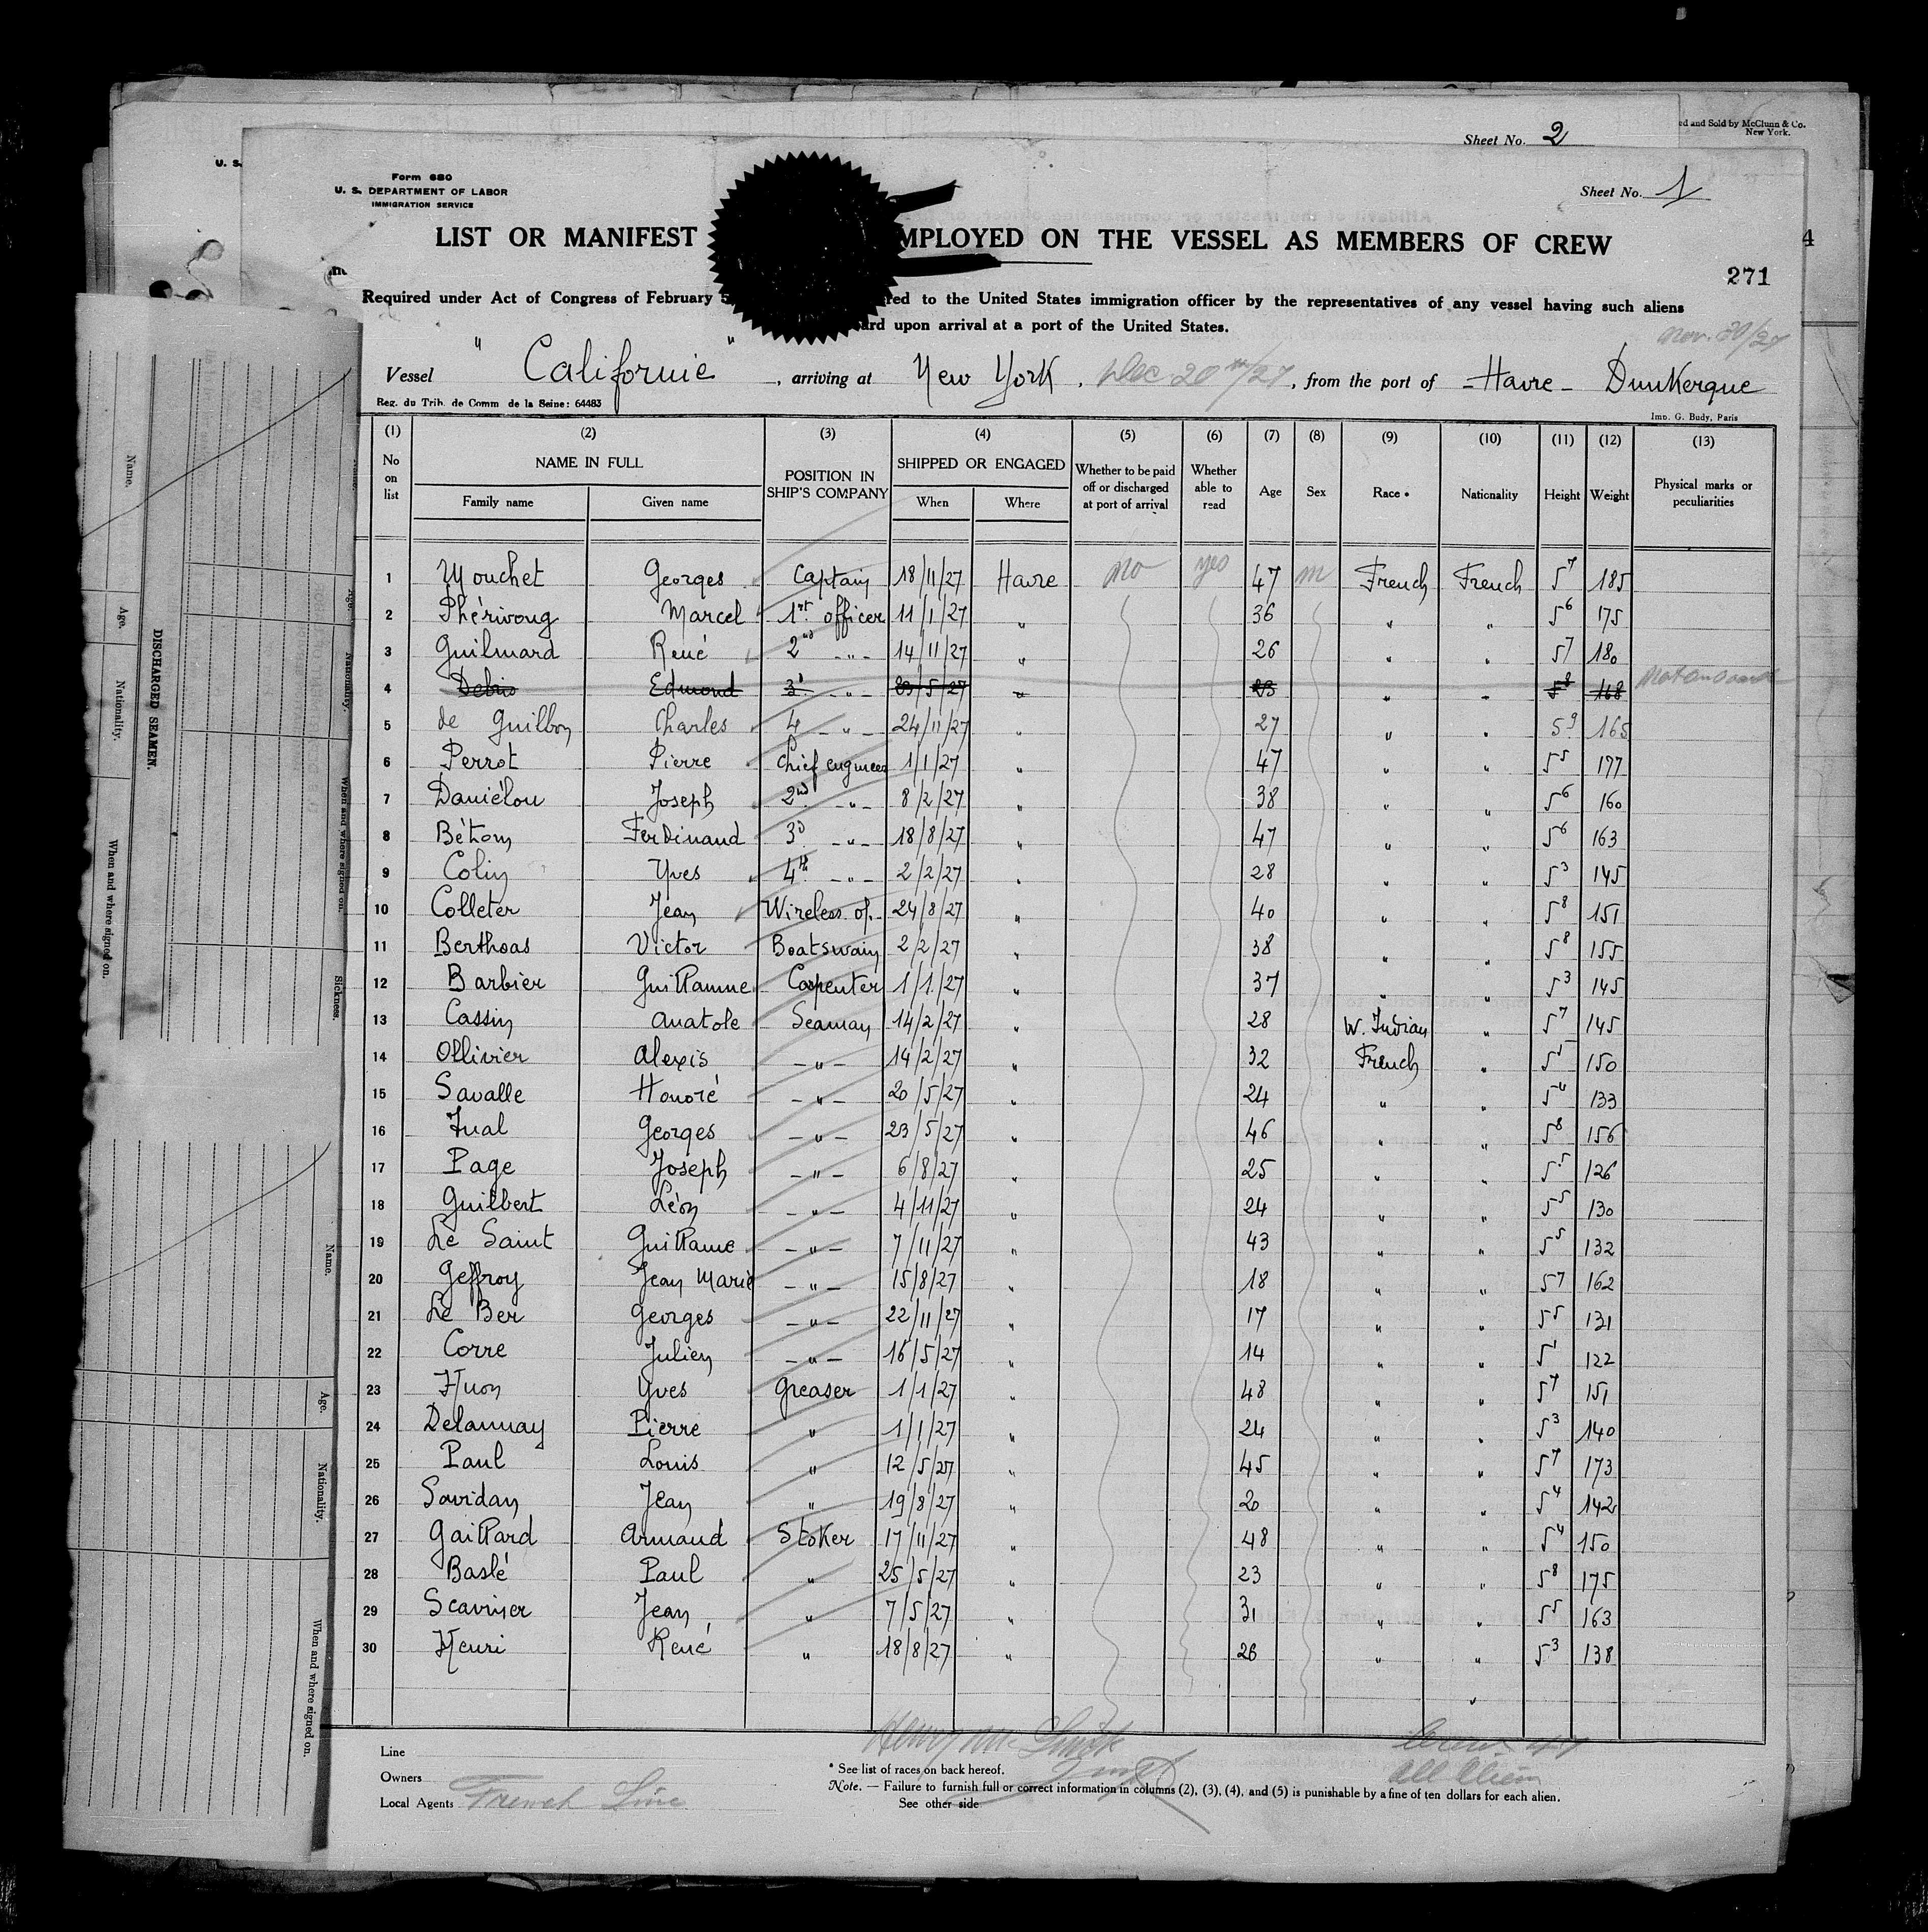 ed and Sold by McClunn & Co.
New York.
Sheet No. 2
U. S.
Form 680
U. S. DEPARTMENT OF LABOR
IMMIGRATION SERVICE
Sheet No. 1
LIST OR MANIFEST MPLOYED ON THE VESSEL AS MEMBERS OF CREW
4
271
Required under Act of Congress of February 5 red to the United States immigration officer by the representatives of any vessel having such aliens
ard upon arrival at a port of the United States.
Nov. 30/27
Vessel "Californie", arriving at New York, Dec 20th/27, from the port of - Havre - Dunkerque
Reg. du Trib. de Comm de la Seine: 64483
Imp. G. Budy, Paris
(1) (2) (3) (4) (5) (6) (7) (8) (9) (10) (11) (12) (13)
No on list NAME IN FULL POSITION IN SHIP'S COMPANY SHIPPED OR ENGAGED Whether to be paid off or discharged at port of arrival Whether able to read Age Sex Race * Nationality Height Weight Physical marks or peculiarities
Family name Given name When Where
1 Mouchet Georges Captain 18/11/27 Havre no yes 47 m French French 5 7 185
2 Phérivong Marcel 1st officer 11/1/27 " 36 " " 5 6 175
3 Guilmard René 2nd -"- 14/11/27 " 26 " " 5 7 180
4 Debris Edmond 3d -"- 23/5/27 " 23 " " 5 8 168 Not on board
5 de Guilbon Charles 4 -"- 24/11/27 " 27 " " 5 9 165
6 Perrot Pierre Chief engineer 1/1/27 " 47 " " 5 5 177
7 Daniélou Joseph 2nd -"- 8/2/27 " 38 " " 5 6 160
8 Béton Ferdinand 3d -"- 18/8/27 " 47 " " 5 6 163
9 Colin Yves 4th -"- 2/2/27 " 28 " " 5 3 145
10 Colleter Jean Wireless op. 24/8/27 " 40 " " 5 8 151
11 Berthoas Victor Boatswain 2/2/27 " 38 " " 5 8 155
12 Barbier Guillaume Carpenter 1/1/27 " 37 " " 5 3 145
13 Cassin Anatole Seaman 14/2/27 " 28 W. Indian " 5 7 145
14 Ollivier Alexis -"- 14/2/27 " 32 French " 5 5 150
15 Savalle Honoré -"- 20/5/27 " 24 " " 5 4 133
16 Jual Georges -"- 23/5/27 " 46 " " 5 8 156
17 Page Joseph -"- 6/8/27 " 25 " " 5 5 126
18 Guilbert Léon -"- 4/11/27 " 24 " " 5 5 130
19 Le Saint Guillaume -"- 7/11/27 " 43 " " 5 5 132
20 Geffroy Jean Marie -"- 15/8/27 " 18 " " 5 7 162
21 Le Ber Georges -"- 22/11/27 " 17 " " 5 5 131
22 Corre Julien -"- 16/5/27 " 14 " " 5 1 122
23 Huon Yves Greaser 1/1/27 " 48 " " 5 7 151
24 Delaunay Pierre " 1/1/27 " 24 " " 5 3 140
25 Paul Louis " 12/5/27 " 45 " " 5 7 173
26 Savidan Jean " 19/8/27 " 20 " " 5 4 142
27 Gaillard Armand Stoker 17/11/27 " 48 " " 5 4 150
28 Baslé Paul " 25/5/27 " 23 " " 5 8 175
29 Scaviner Jean " 7/5/27 " 31 " " 5 5 163
30 Henri René " 18/8/27 " 26 " " 5 3 138
Line
Owners
Local Agents French Line
Henry Mc Smith
Crew 47
All Alien
* See list of races on back hereof.
Note. — Failure to furnish full or correct information in columns (2), (3), (4), and (5) is punishable by a fine of ten dollars for each alien.
See other side
DISCHARGED SEAMEN.
Name.
Age.
Nationality.
When and where signed on.
Age.
Nationality.
When and where signed on.
Sickness.
Name.
Age.
Nationality.
When and where signed on.